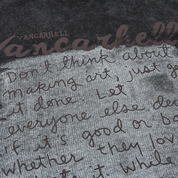 Vancarhe!!!
VANCARHELL
Don't think about
making art, just get
it done. Let
everyone else dec
if it's good or ba
whether they lov
it. While